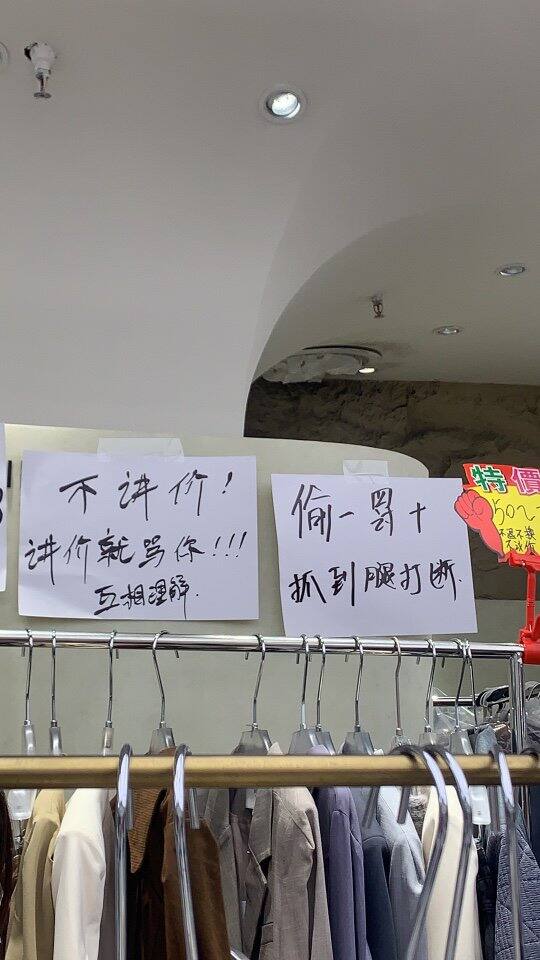 不讲价!
讲价就骂你!!!
互相理解.
偷一罚十
抓到腿打断.
特價
不退不换